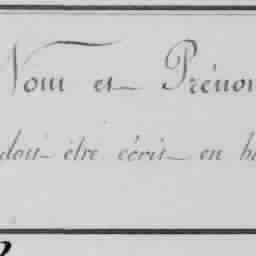 Nom et Prénom
doit être écrit en